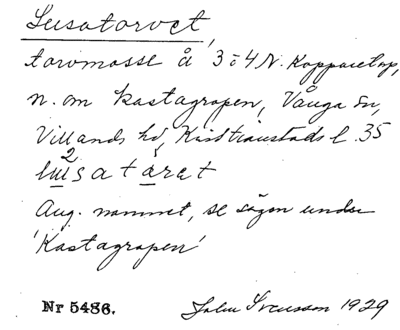 Lusatorvet,
torvmosse å 3 o 4 N. Kopparetorp,
n. om Kastagropen, Vånga sn,
Villands hd, Kristianstads l. 35
lusatåret
Ang. namnet, se sägen under
'Kastagropen'
Nr 5486. John Svensson 1929